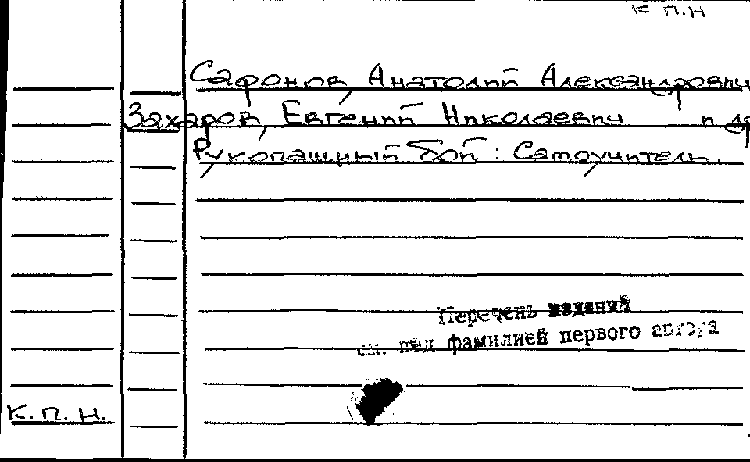 к п.н
Сафонов, Анатолий Александрович
Захаров, Евгений Николаевич и др
Рукопашный бой : Самоучитель.
Перечень изданий
см. под фамилией первого автора
К. П. Н.